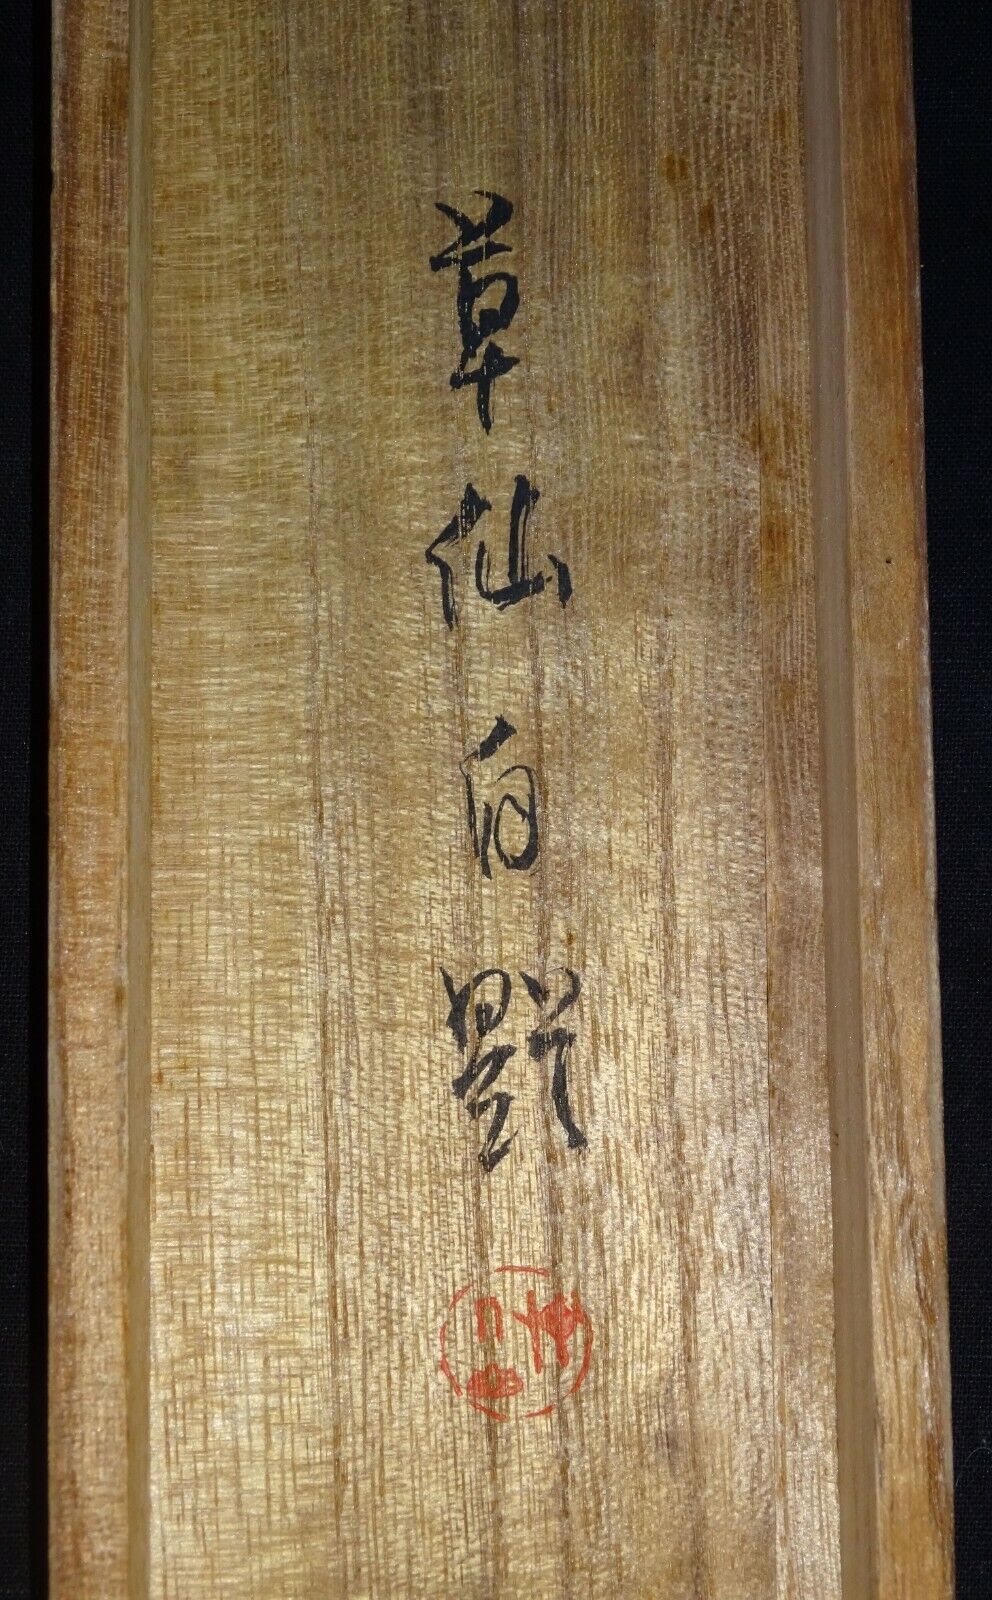 草仙自題